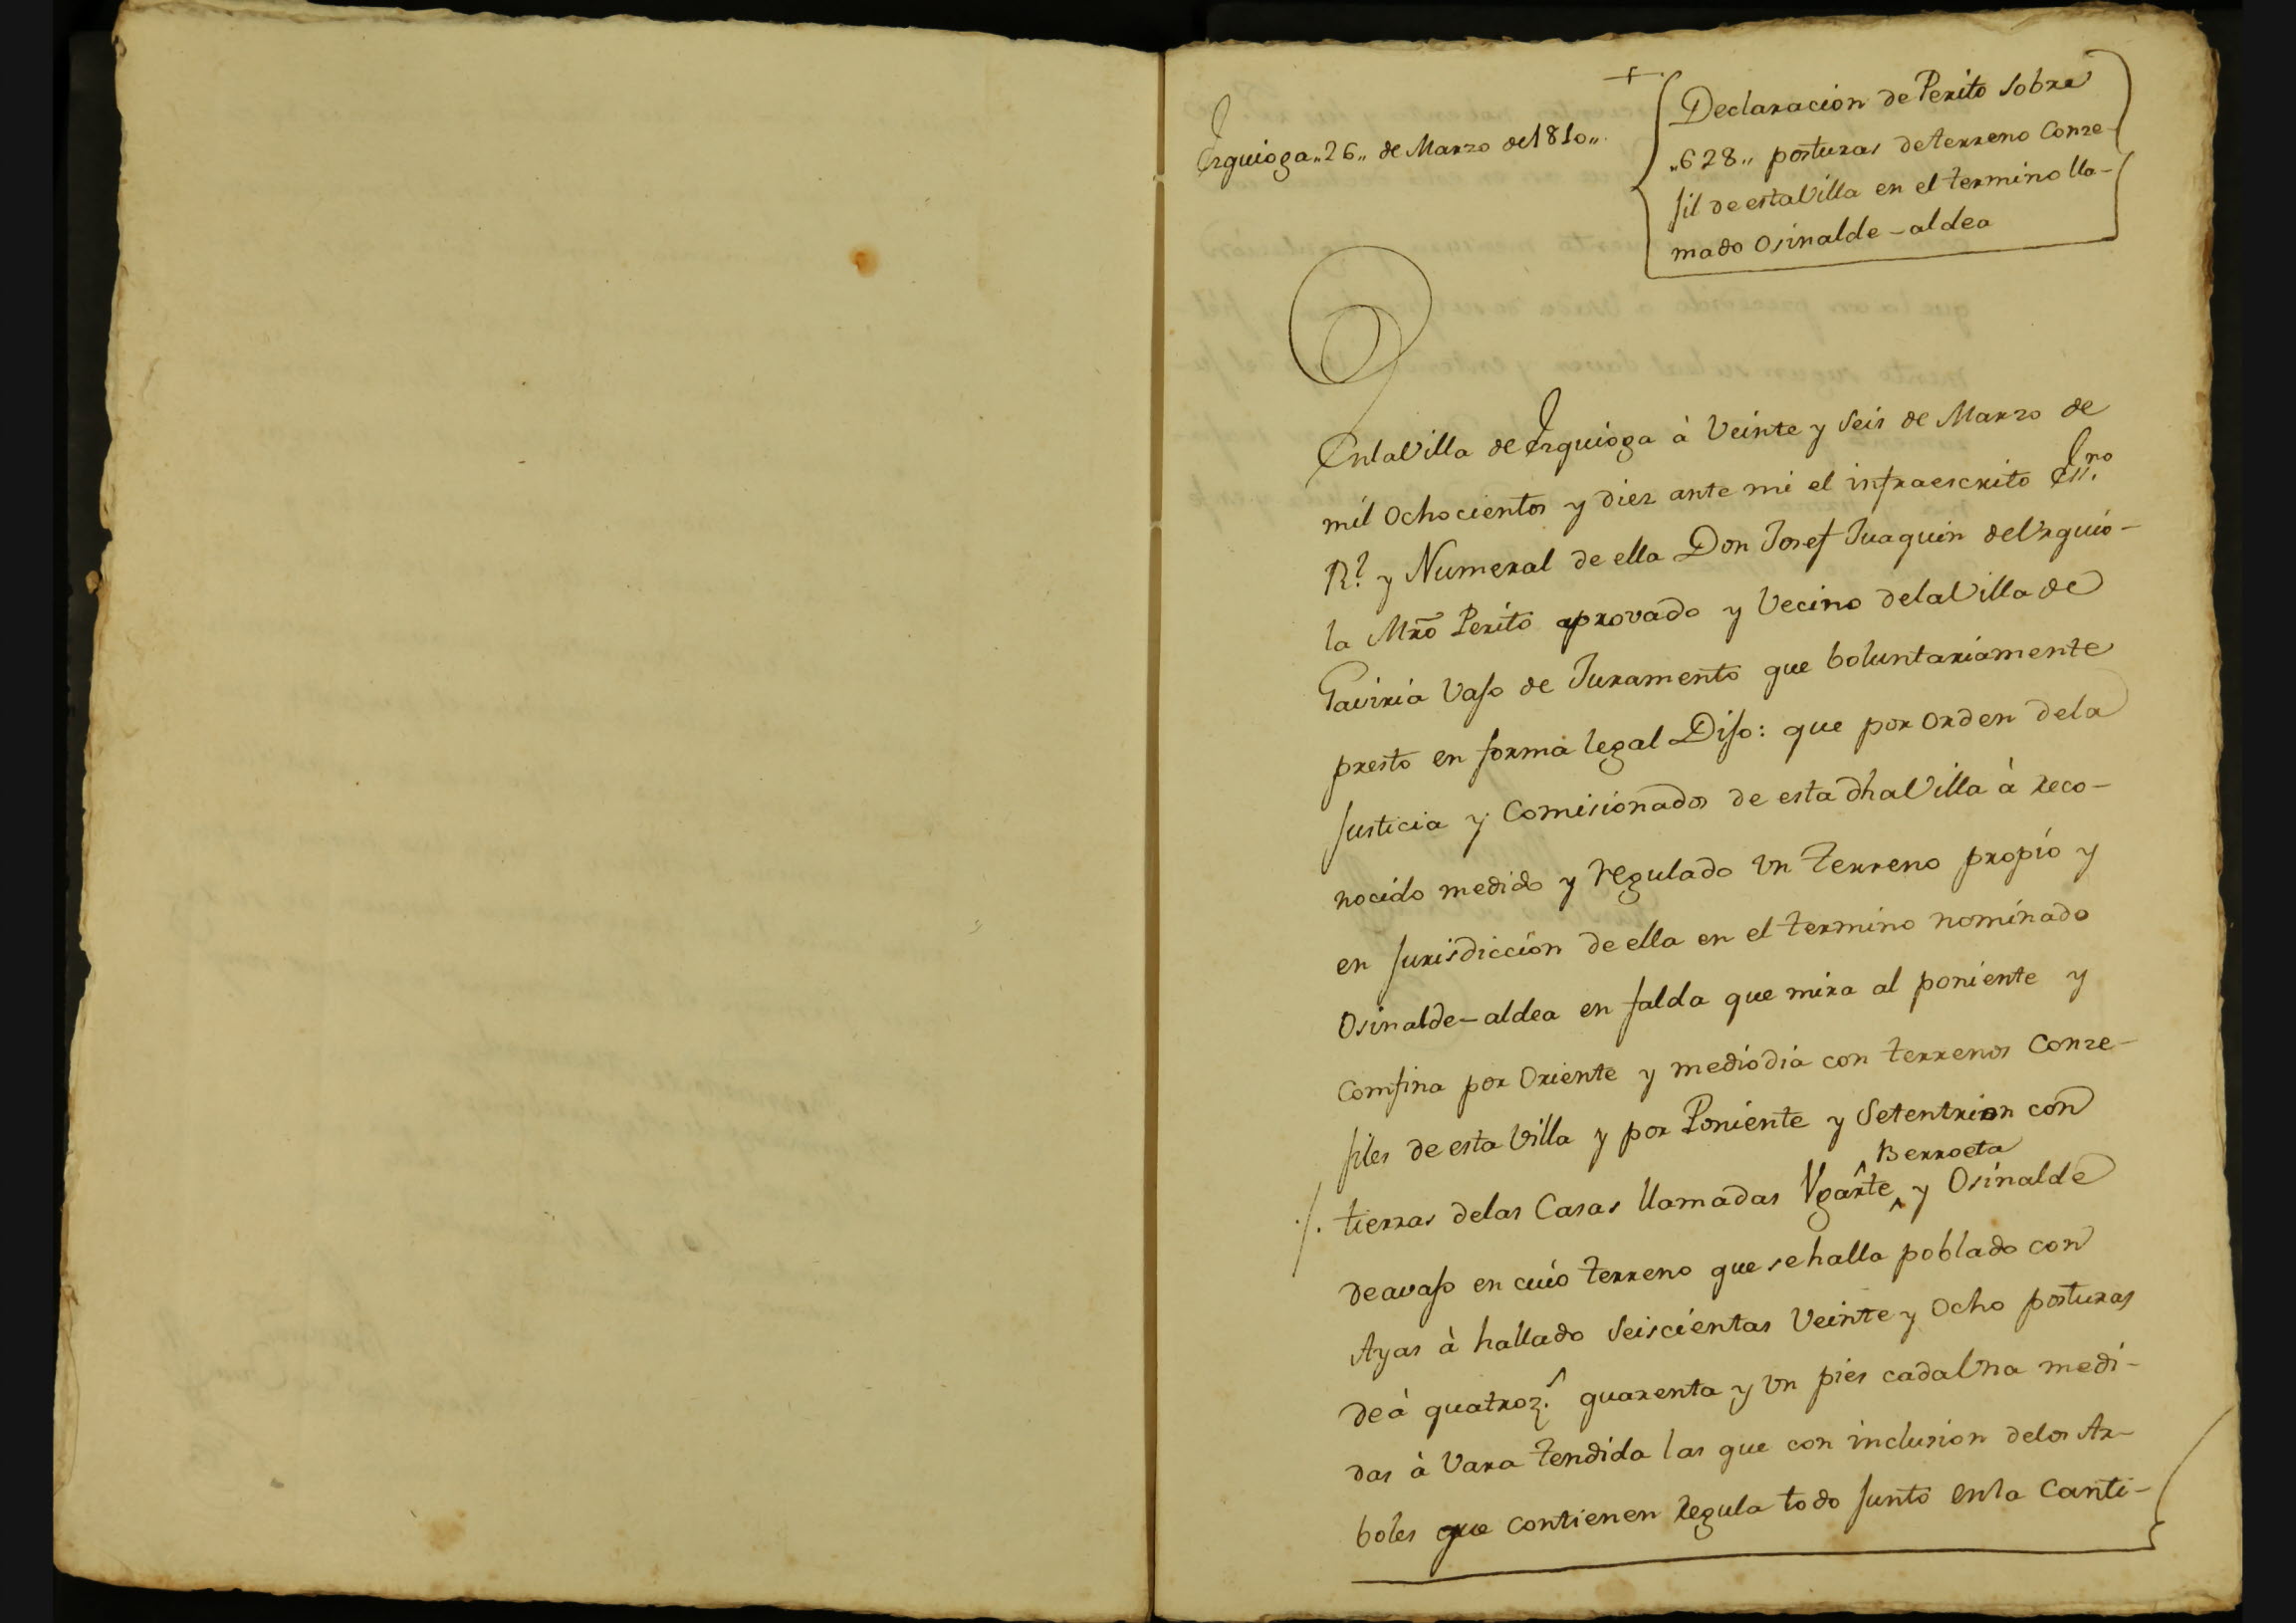 +
Ezquioga „26„ de Marzo de 1810„.
Declaracion de Perito Sobre
„628„ posturas de terreno Conze-
jil de esta Villa en el termino lla-
mado Osinalde-aldea
En la Villa de Ezquioga à Veinte y Seis de Marzo de
mil Ochocientos y diez ante mi el infraescrito Ess.no
R.l y Numeral de ella Don Josef Juaquin de Urguio-
la Mr̃o Perito aprovado y Vecino de la Villa de
Gaviria Vajo de Juramento que boluntariamente
presto en forma legal Dijo: que por orden de la
Justicia y Comisionados de esta dha Villa à reco-
nocido medido y regulado Vn terreno propio y
en Jurisdiccion de ella en el termino nominado
Osinalde-aldea en falda que mira al poniente y
Comfina por Oriente y mediodia con terrenos Conze-
jiles de esta Villa y por Poniente y Setentrion con
Berroeta
./. tierras de las Casas llamadas Vgarte ^ y Osinalde
de avajo en cuio terreno que se halla poblado con
Ayas à hallado Seiscientas Veinte y Ocho posturas
de à quatroz.s quarenta y Vn pies cada Vna medi-
das à Vara tendida las que con inclusion de los Ar-
boles que contienen regula todo junto en la Canti-